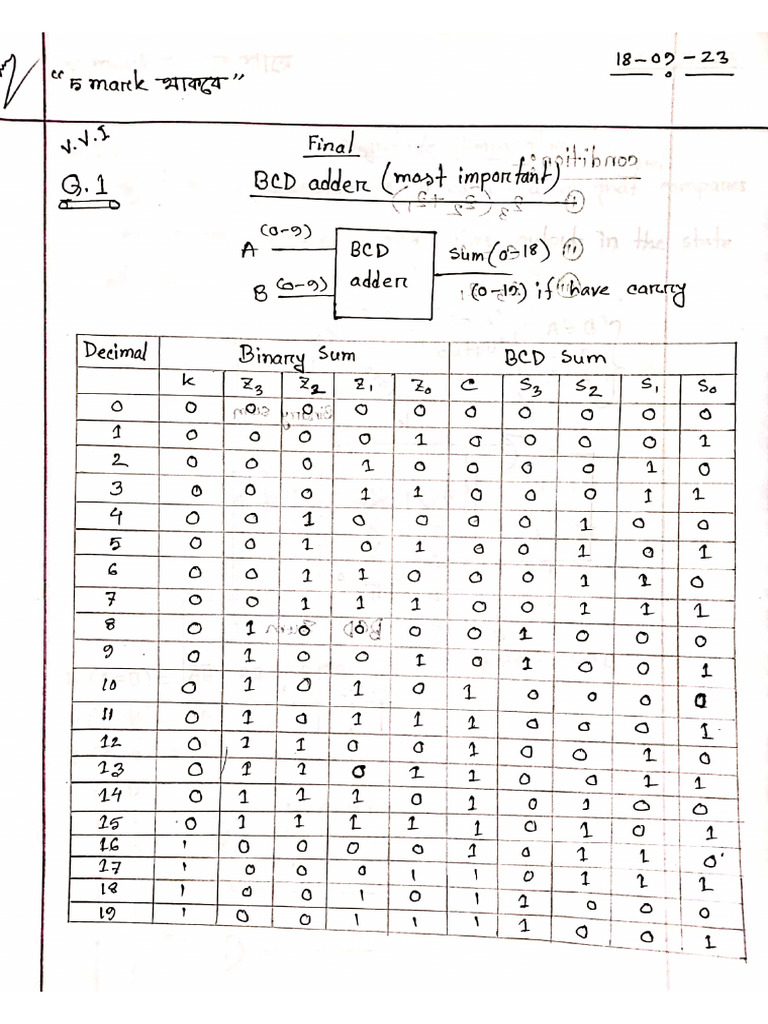 "5 mark থাকবে"
18-09-23
V.V.I
Final
Q.1
BCD adder (most important)
A (0-9)
BCD adder
sum (0-18)
B (0-9)
(0-19) if have carry
Decimal Binary Sum BCD Sum
K Z3 Z2 Z1 Z0 C S3 S2 S1 S0
0 0 0 0 0 0 0 0 0 0 0
1 0 0 0 0 1 0 0 0 0 1
2 0 0 0 1 0 0 0 0 1 0
3 0 0 0 1 1 0 0 0 1 1
4 0 0 1 0 0 0 0 1 0 0
5 0 0 1 0 1 0 0 1 0 1
6 0 0 1 1 0 0 0 1 1 0
7 0 0 1 1 1 0 0 1 1 1
8 0 1 0 0 0 0 1 0 0 0
9 0 1 0 0 1 0 1 0 0 1
10 0 1 0 1 0 1 0 0 0 0
11 0 1 0 1 1 1 0 0 0 1
12 0 1 1 0 0 1 0 0 1 0
13 0 1 1 0 1 1 0 0 1 1
14 0 1 1 1 0 1 0 1 0 0
15 0 1 1 1 1 1 0 1 0 1
16 1 0 0 0 0 1 0 1 1 0
17 1 0 0 0 1 1 0 1 1 1
18 1 0 0 1 0 1 1 0 0 0
19 1 0 0 1 1 1 1 0 0 1